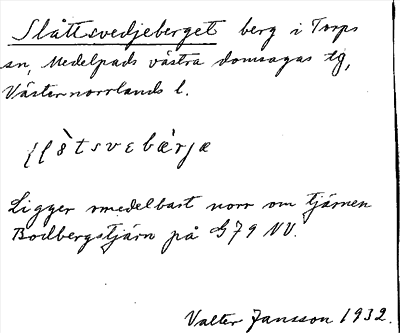 Slåttsvedjeberget berg i Torps
sn, Medelpads västra domsagas tg,
Västernorrlands l.
Ligger omedelbart norr om tjärnen
Bodbergstjärn på G79 NV.
Valter Jansson 1932.